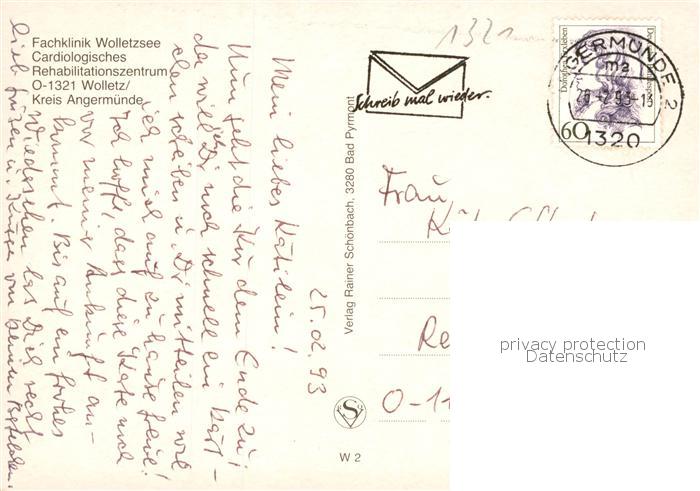 Fachklinik Wolletzsee
Cardiologisches
Rehabilitationszentrum
O-1321 Wolletz/
Kreis Angermünde
1321
Schreib mal wieder.
GERMÜNDE 2
ma
-2.93-13
1320
60
Dorothea Erxleben
Deutsche Bundespost
25.02.93
Mein liebes Kätilein!
Nun geht die Kur dem Ende zu,
da will ich Dir noch schnell ein Kärt-
chen schreiben u. Dir mitteilen wie
ich mich auf zu Hause freue!
Ich hoffe, dass diese Karte noch
vor meiner Ankunft an-
kommt. Bis auf ein frohes
Wiedersehen las Dich recht
lieb grüßen u. küssen von Deinem
Verlag Rainer Schönbach, 3280 Bad Pyrmont
S
W 2
Frau
Re
O-11
privacy protection
Datenschutz